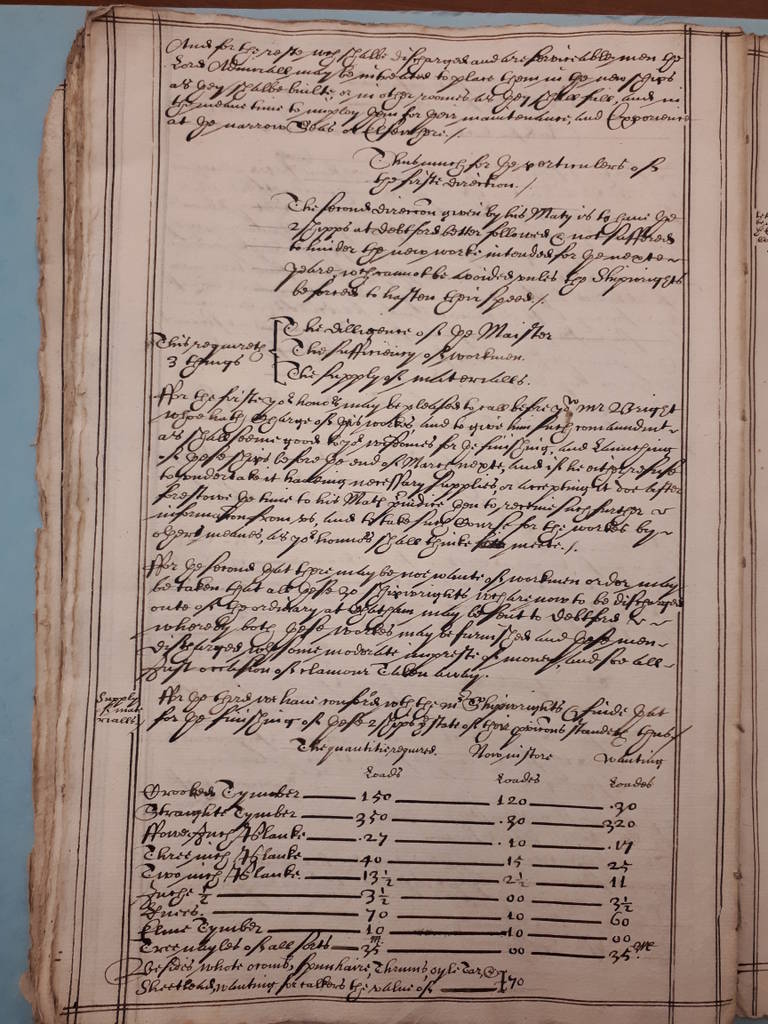 And for the reste wch shalbe discharged and are serviceable men the
Lord Admirall may be intreated to place them in the new shipps
as they shalbe builte or in other roomes as they shall fall, and in
the meane time to imploy them for their maintenance, and Experience
at the narrow Seas or Elsewhere /.
Thus much for the perticulers of
the firste direction. /
The second direccon given by his Maty is to have the
2 shipps at detford better followed & not suffered
to hinder the new workes intended for the nexte
yeare, wch cannot be avoided unles the Shipwrights
be forced to hasten their speed /.
This requireth
3 things
The dilligence of the Maister
The sufficiency of workmen.
The supply of materialls.
ffor the firste yor honors may be pleased to call before you Mr Wright
whoe hath Charge of this worke, and to give him such comaundmt
as shall seeme good to yor wisdomes for the finishing, and Launching
of these shipps before the end of March nexte, and if he either refuse
to undertake it haveing necessary supplies, or accepting it doe after
foreslowe the time to his Mats then to receive such further
information from us, and to take such Course for the workes by
other meanes, as yor honnors shall thinke meete /.
ffor the second that there may be noe wante of workmen order may
be taken that all these 30 shipwrights wch are now to be discharged
oute of the ordinary at Chatham may be sent to detford
whereby both these workes may be furnished and these men
discharged wth some moderate impreste of money, and soe all
just occasion of clamour Taken away.
Supply
of mate
rialls
ffor the third we have conferd wth the Mr Shipwrights & finde that
for the finishing of these 2 shipps the state of their provicons standeth thus /
The quantitie required. Now in store Wanting
Loads Loades Loades
Crooked Tymber 150 120 .30
Straighte Tymber 350 .30 320
ffower Inch Planke .27 .10 .17
Three inch Planke 40 15 25
Two inch Planke. 13½ 2½ 11
Inche ½ 3½ 00 3½
Knees. 70 10 60
Elme Tymber 10 10 00
Treenayles of all sorts 35m 00 35m
Besides whole ocomb, Spunhaire, Thrums, oyle Tar, &
Sheetlead, wanting for calkers the value of £70